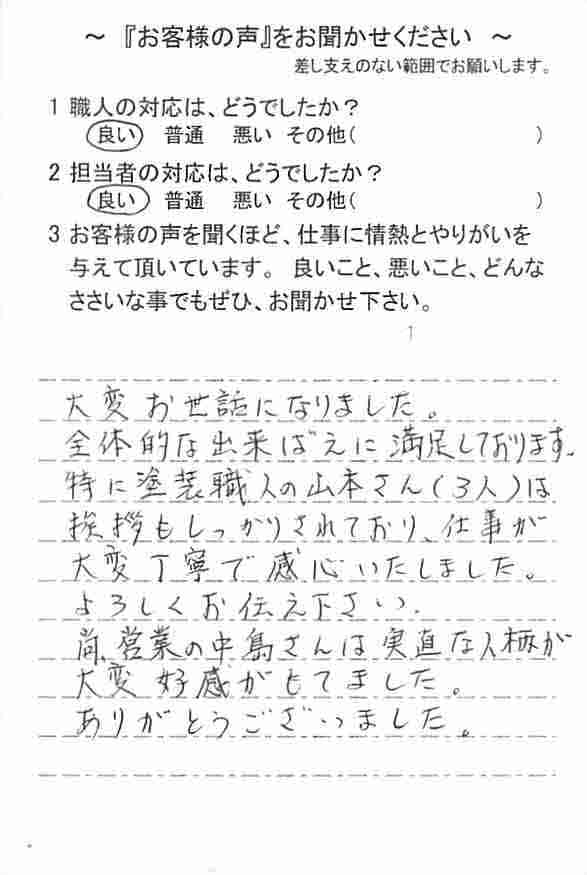 ～ 『お客様の声』をお聞かせください ～
差し支えのない範囲でお願いします。
1 職人の対応は、どうでしたか？
良い 普通 悪い その他( )
2 担当者の対応は、どうでしたか？
良い 普通 悪い その他( )
3 お客様の声を聞くほど、仕事に情熱とやりがいを
与えて頂いています。 良いこと、悪いこと、どんな
ささいな事でもぜひ、お聞かせ下さい。
大変お世話になりました。
全体的な出来ばえに満足しております。
特に塗装職人の山本さん(3人)は
挨拶もしっかりされており、仕事が
大変丁寧で感心いたしました。
よろしくお伝え下さい.
尚、営業の中島さんは実直な人柄が
大変好感がもてました。
ありがとうございました。